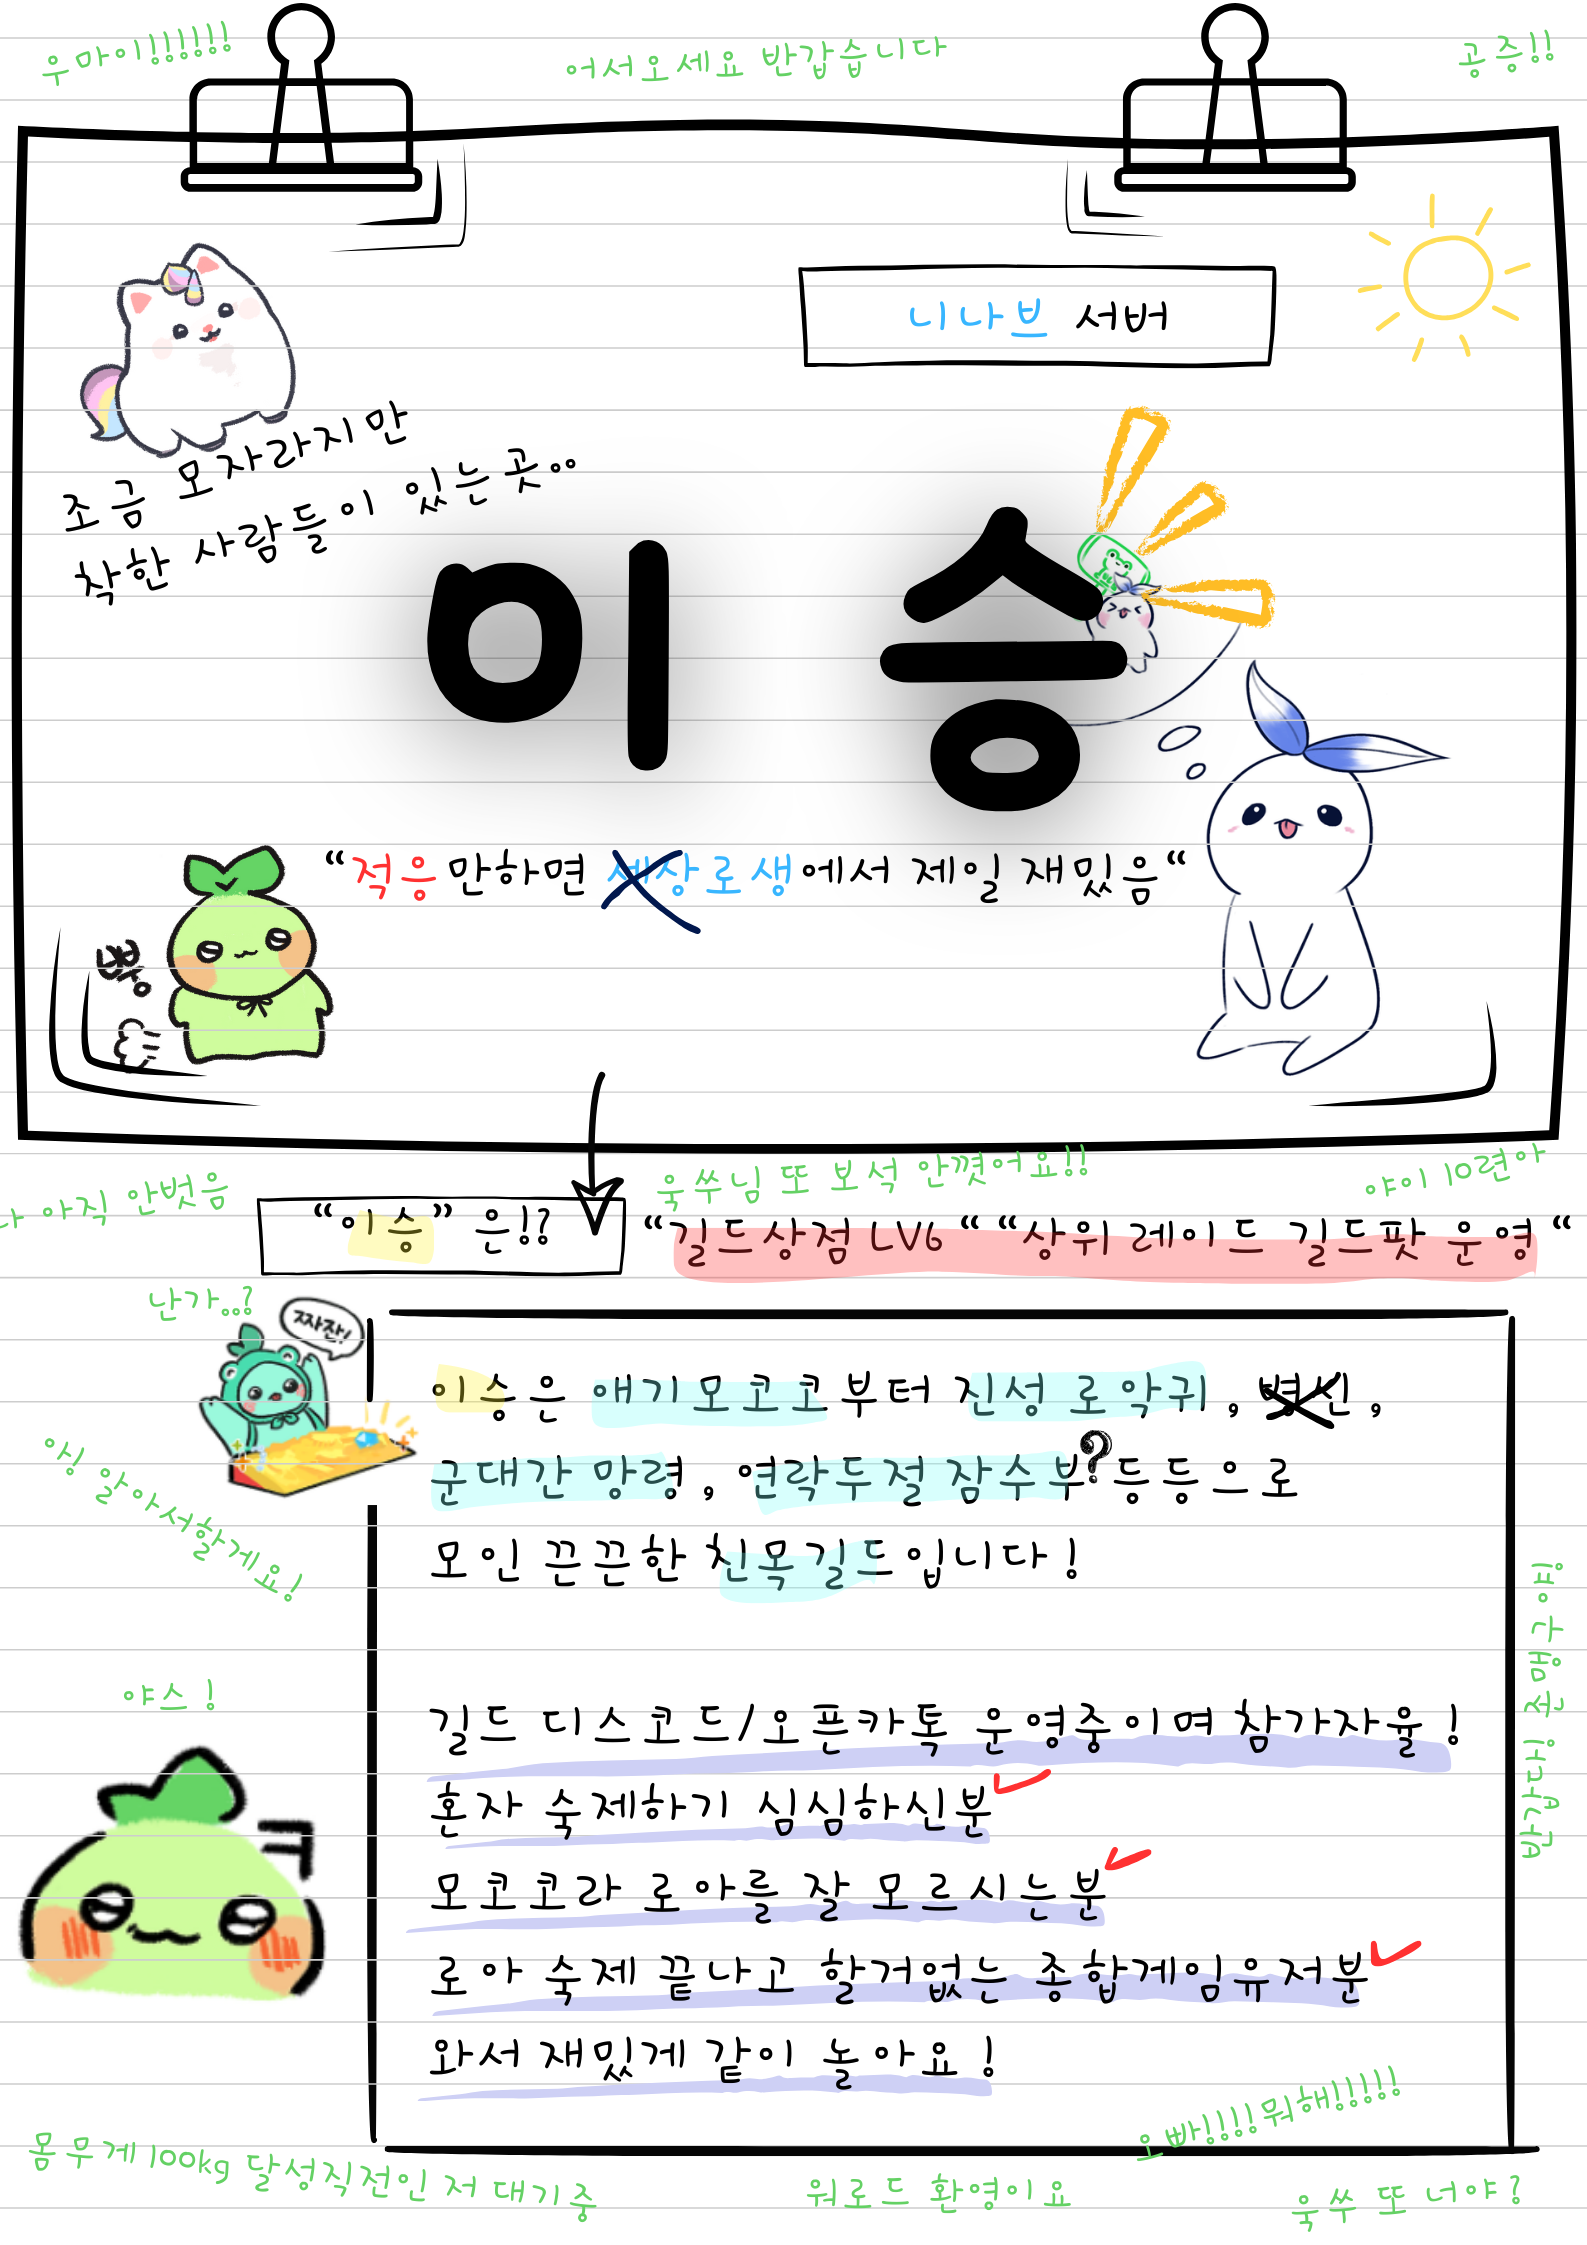 우마이!!!!!!
어서오세요 반갑습니다
공증!!
니나브 서버
조금 모자라지만
착한 사람들이 있는곳..
이 승
“적응만하면 세상로생에서 제일 재밌음“
뽕
나 아직 안벗음
욱쑤님 또 보석 안꼈어요!!
야이 10련아
“이승” 은!?
“길드상점 LV6 “ “상위 레이드 길드팟 운영 “
난가..?
쨔쟌!
이승은 애기모코코부터 진성 로악귀, 병신,
군대간 망령, 연락두절 잠수부?등등으로
모인 끈끈한 친목길드입니다!
아잉 알아서할게요!
야스!
ㅋ
길드 디스코드/오픈카톡 운영중이며 참가자율!
혼자 숙제하기 심심하신분
모코코라 로아를 잘 모르시는분
로아 숙제 끝나고 할거없는 종합게임유저분
와서 재밌게 같이 놀아요!
오빠!!!!뭐해!!!!!
몸무게100kg 달성직전인 저 대기중
워로드 환영이요
욱쑤 또 너야?